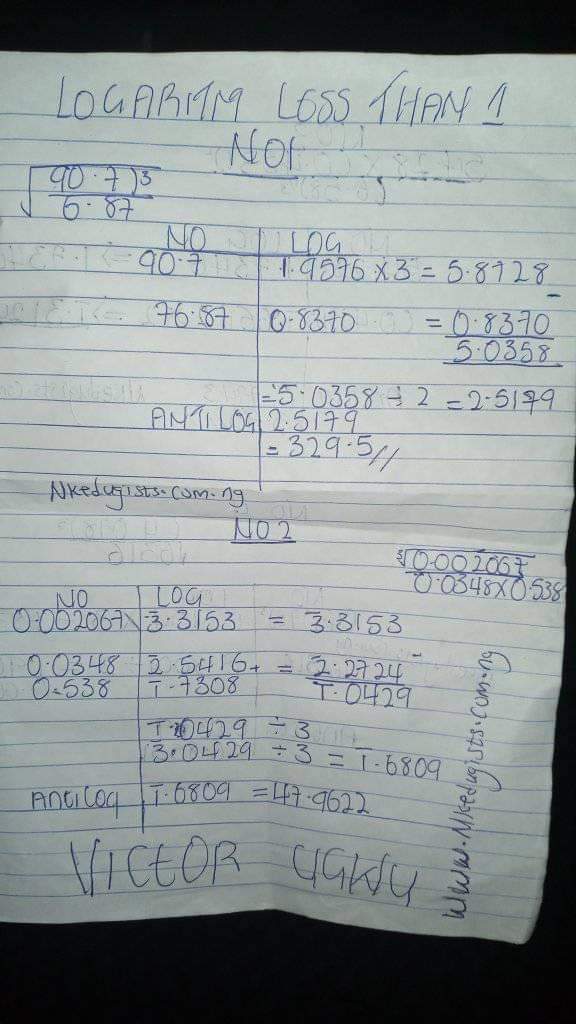 LOGARITM LESS THAN 1
NO1
√90.7)3
6.87
NO LOG
90.7 1.9576 x 3 = 5.8728 -
76.87 0.8370 = 0.8370
5.0358
= 5.0358 ÷ 2 = 2.5179
ANTILOG 2.5179
= 329.5//
Nkedugists.com.ng
NO 2
3√0.002067
0.0348x0.538
NO LOG
0.002067 3̅.3153 = 3̅.3153
0.0348 2̅.5416+ = 2̅.2724 -
0.538 1̅.7308 1̅.0429
1̅.0429 ÷ 3
3̅.0429 ÷ 3 = 1̅.6809
Antilog 1̅.6809 = 47.9622
VICTOR
www.Nkedugists.com.ng